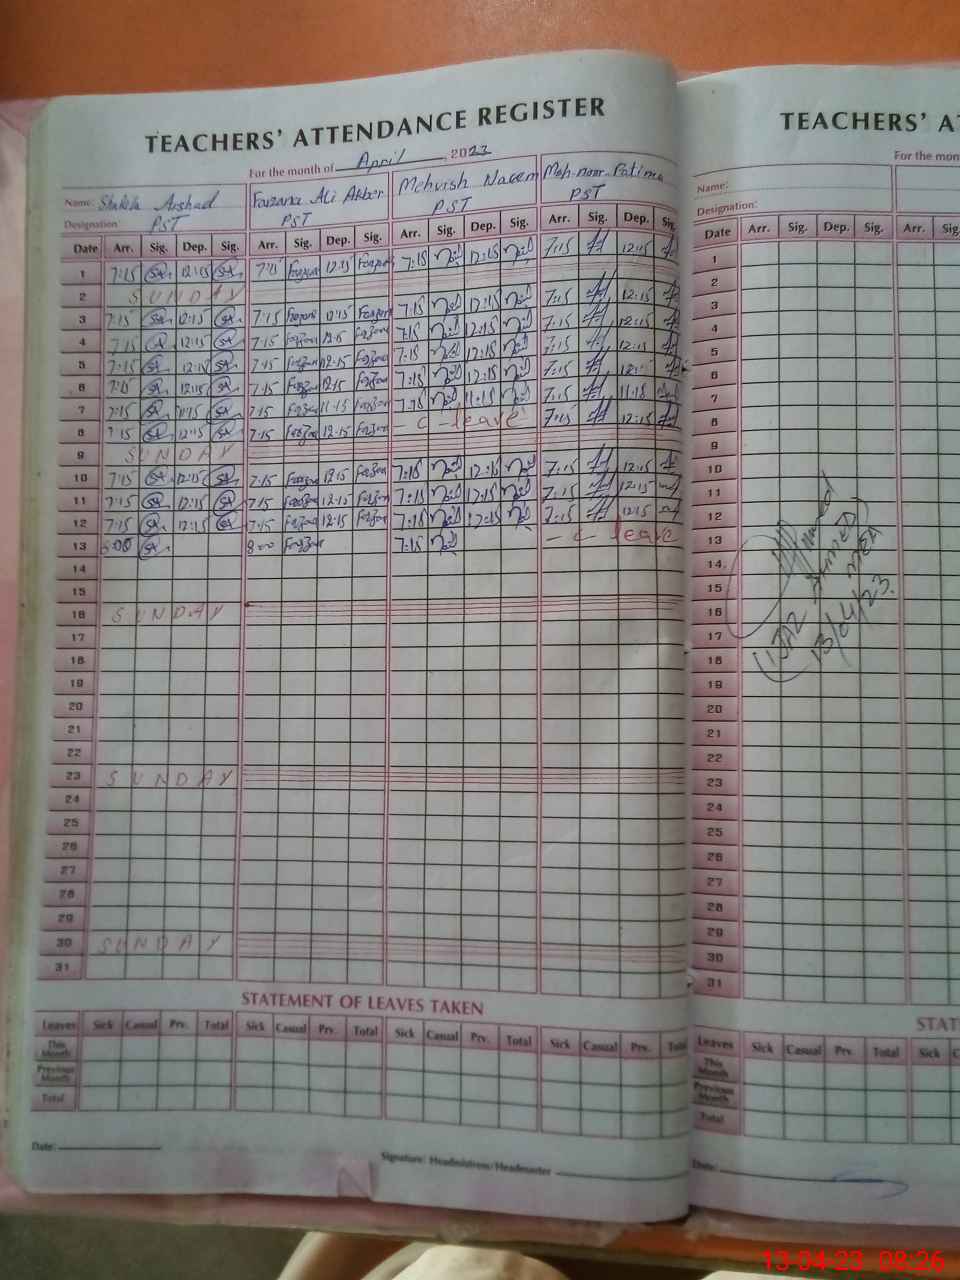 TEACHERS' ATTENDANCE REGISTER
For the month of April, 2023
Name: Shakila Arshad Farzana Ali Akber Mehvish Naeem Mah-noor Fatima
Designation PST PST PST PST
Date Arr. Sig. Dep. Sig. Arr. Sig. Dep. Sig. Arr. Sig. Dep. Sig. Arr. Sig. Dep. Sig.
1 7:15 SA 12:15 SA 7:15 Farzana 12:15 Farzana 7:15 12:15 7:15 12:15
2 SUNDAY
3 7:15 SA 12:15 SA 7:15 Farzana 12:15 Farzana 7:15 12:15 7:15 12:15
4 7:15 SA 12:15 SA 7:15 Farzana 12:15 Farzana 7:15 12:15 7:15 12:15
5 7:15 SA 12:15 SA 7:15 Farzana 12:15 Farzana 7:15 12:15 7:15 12:15
6 7:15 SA 12:15 SA 7:15 Farzana 12:15 Farzana 7:15 12:15 7:15 12:15
7 7:15 SA 11:15 SA 7:15 Farzana 11:15 Farzana 7:15 11:15 7:15 11:15
8 7:15 SA 12:15 SA 7:15 Farzana 12:15 Farzana - C - leave 7:15 12:15
9 SUNDAY
10 7:15 SA 12:15 SA 7:15 Farzana 12:15 Farzana 7:15 12:15 7:15 12:15
11 7:15 SA 12:15 SA 7:15 Farzana 12:15 Farzana 7:15 12:15 7:15 12:15
12 7:15 SA 12:15 SA 7:15 Farzana 12:15 Farzana 7:15 12:15 7:15 12:15
13 8:00 SA 8:00 Farzana 7:15 - C - leave
14
15
16 SUNDAY
17
18
19
20
21
22
23 SUNDAY
24
25
26
27
28
29
30 SUNDAY
31
STATEMENT OF LEAVES TAKEN
Leaves Sick Casual Prv. Total Sick Casual Prv. Total Sick Casual Prv. Total Sick Casual Prv. Total
This Month
Previous Month
Total
Date:
Signature: Headmistress/Headmaster
TEACHERS' A
For the mon
Name:
Designation:
Date Arr. Sig. Dep. Sig. Arr. Sig.
1
2
3
4
5
6
7
8
9
10
11
12
13
14
15
16
17
18
19
20
21
22
23
24
25
26
27
28
29
30
31
(IJAZ AHMED)
MEA
13/04/23.
STAT
Leaves Sick Casual Prv. Total Sick C
This Month
Previous Month
Total
Date:
13-04-23 08:26